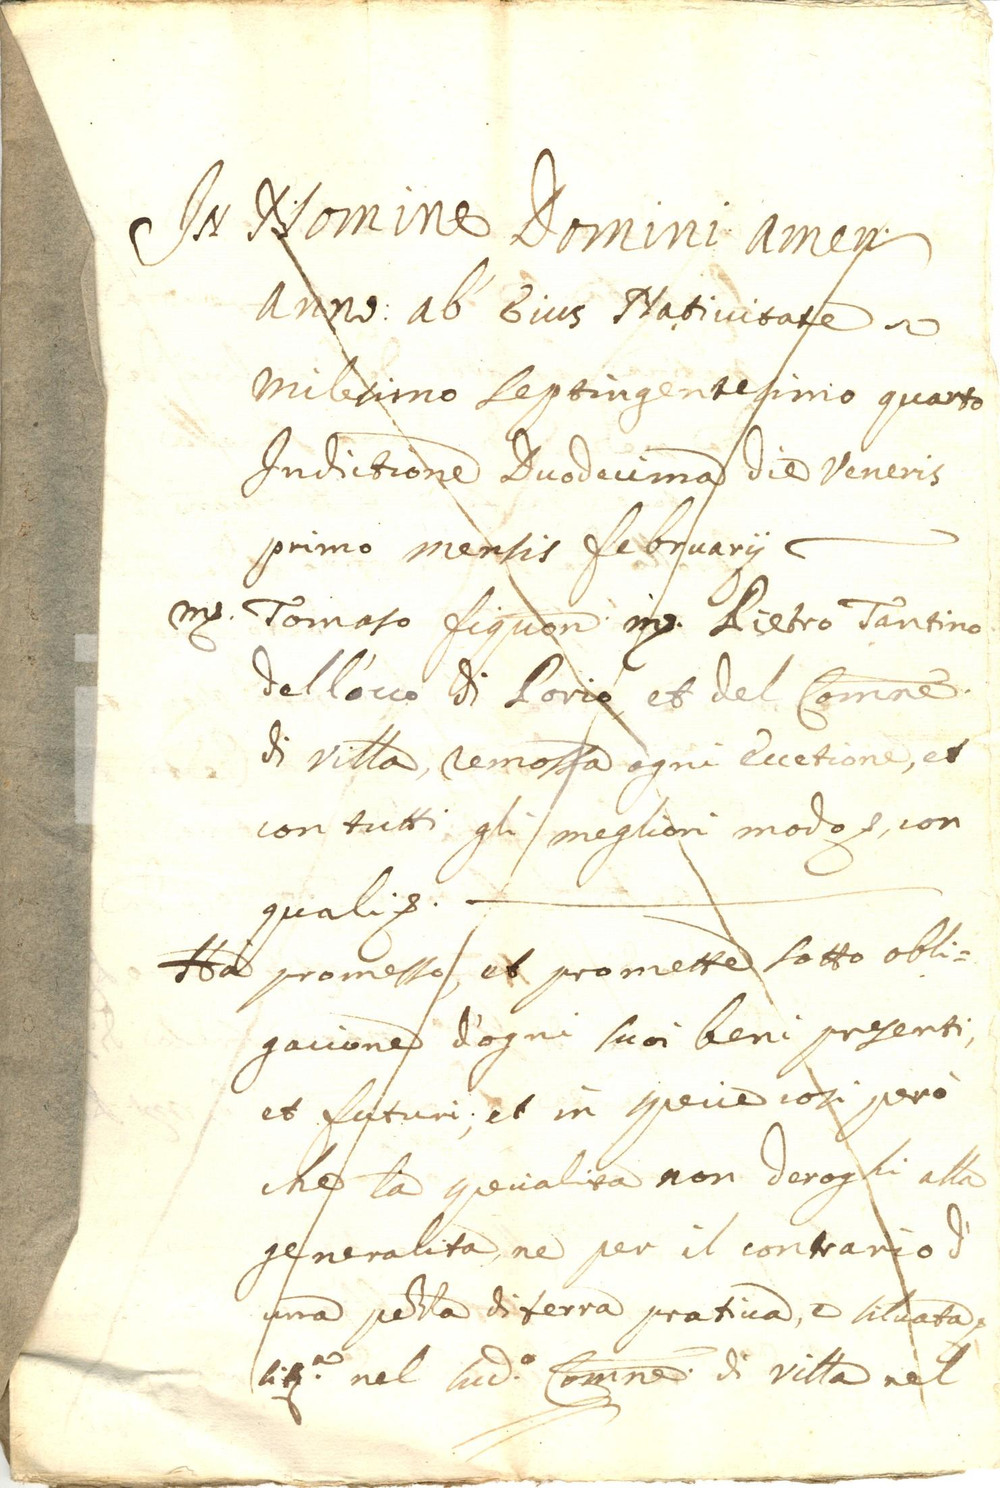 In Nomine Domini amen
Anno: ab Eius Nativitate
Milesimo septingentesimo quarto
Indictione Duodecima die Veneris
primo mensis february
Tomaso figuon Pietro Tantino
di et del Comne
di Villa, remossa ogni eccetione, et
con tutti gli megliori modo, con
quali
Hà promesso, et promette sotto obli=
gacione d'ogni suoi beni presenti,
et futuri; et in specie così però
che la specialita non deroghi alla
generalita, ne per il contrario d'
una pezza di terra prativa, e situata
nel sud.o Comne di Villa nel